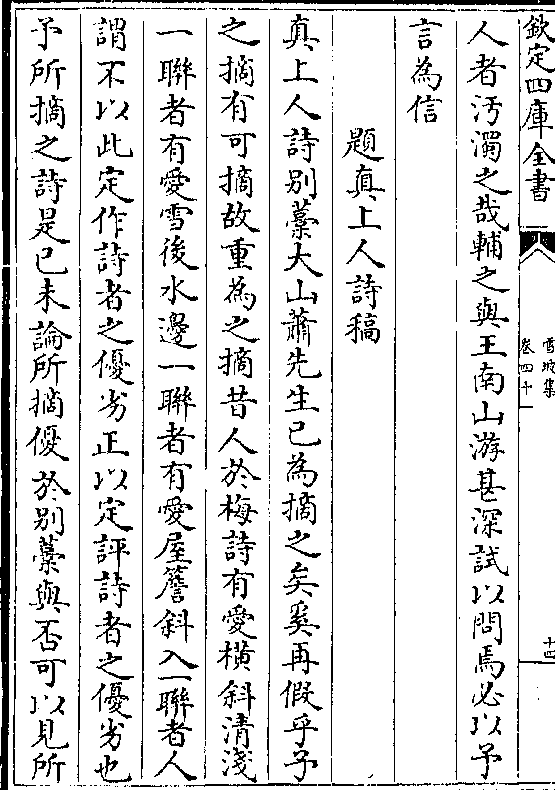 欽定四庫全書
雪坡集
卷四十
十四
人者汚濁之哉輔之與王南山游甚深試以問焉必以予
言為信
題真上人詩稿
真上人詩别藳大山蕭先生已為摘之矣奚再假乎予
之摘有可摘故重為之摘昔人於梅詩有愛橫斜清淺
一聯者有愛雪後水邊一聯者有愛屋簷斜入一聯者人
謂不以此定作詩者之優劣正以定評詩者之優劣也
予所摘之詩是已未論所摘優於别藳與否可以見所